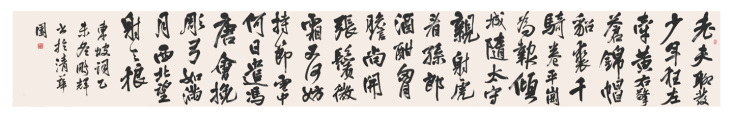 老夫聊發
少年狂左
牽黃右擎
蒼錦帽
貂裘千
騎卷平崗
為報傾
城隨太守
親射虎
看孫郎
酒酣胸
膽尚開
張鬢微
霜又何妨
持節雲中
何日遣馮
唐會挽
彫弓如滿
月西北望
射天狼
東坡詞乙
未冬鵬輝
書於清華
園